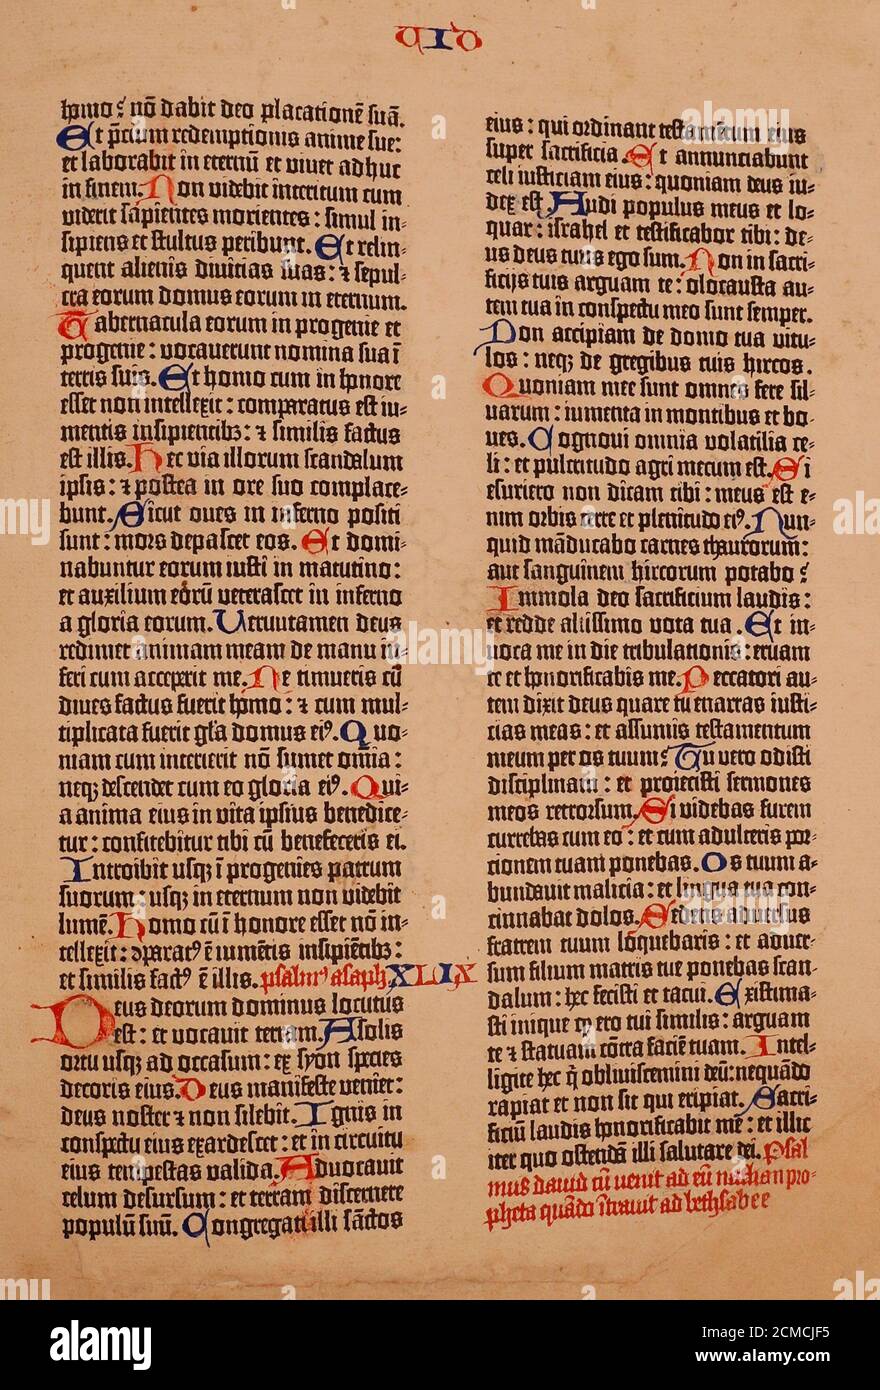 Ⴀ I D
homo? nō dabit deo placationē suā.
Et p̄cium redemptionis anime sue:
et laborabit in eternū et vivet adhuc
in finem. Non videbit interitum cum
viderit sapientes morientes: simul in=
sipiens et stultus peribunt. Et relin=
quent alienis divitias suas: ⁊ sepul=
cra eorum domus eorum in eternum.
Tabernacula eorum in progenie et
progenie: vocaverunt nomina sua ī
terris suis. Et homo cum in honore
esset non intellexit: comparatus est iu=
mentis insipientibꝫ: ⁊ similis factus
est illis. Hec via illorum scandalum
ipsis: ⁊ postea in ore suo complace=
bunt. Sicut oves in inferno positi
sunt: mors depascet eos. Et domi=
nabuntur eorum iusti in matutino:
et auxilium eorū veterascet in inferno
a gloria eorum. Veruntamen deus
redimet animam meam de manu in=
feri cum acceperit me. Ne timueris cū
dives factus fuerit homo: ⁊ cum mul=
tiplicata fuerit gl̄a domus eiꝰ. Quo=
niam cum interierit nō sumet omīa:
neqꝫ descendet cum eo gloria eiꝰ. Qui=
a anima eius in vita ipsius benedice=
tur: confitebitur tibi cū benefeceris ei.
Introibit usqꝫ ī progenies patrum
suorum: usqꝫ in eternum non videbit
lumē. Homo cū ī honore esset nō in=
tellexit: ꝯparatꝰ ē iumētis insipiētibꝫ:
et similis factꝰ ē illis. psalmꝰ asaph. XLIX
Deus deorum dominus locutus
est: et vocavit terram. A solis
ortu usqꝫ ad occasum: ex syon species
decoris eius. Deus manifeste veniet:
deus noster ⁊ non silebit. Ignis in
conspectu eius exardescet: et in circuitu
eius tempestas valida. Advocavit
celum desursum: et terram discernere
populū suū. Congregate illi sāctos
eius: qui ordinant testamentum eius
super sacrificia. Et annunciabunt
celi iusticiam eius: quoniam deus iu=
dex est. Audi populus meus et lo=
quar: israhel et testificabor tibi: de=
us deus tuus ego sum. Non in sacri=
ficijs tuis arguam te: olocausta au=
tem tua in conspectu meo sunt semper.
Non accipiam de domo tua vitu=
los: neqꝫ de gregibus tuis hircos.
Quoniam mee sunt omnes fere sil=
varum: iumenta in montibus et bo=
ves. Cognovi omnia volatilia ce=
li: et pulcritudo agri mecum est. Si
esuriero non dicam tibi: meus est e=
nim orbis terre et plenitudo eiꝰ. Nun=
quid māducabo carnes thaurorum:
aut sanguinem hircorum potabo?
Immola deo sacrificium laudis:
et redde altissimo vota tua. Et in=
voca me in die tribulationis: eruam
te et honorificabis me. Peccatori au=
tem dixit deus quare tu enarras iusti=
cias meas: et assumis testamentum
meum per os tuum? Tu vero odisti
disciplinam: et proiecisti sermones
meos retrorsum. Si videbas furem
currebas cum eo: et cum adulteris por=
cionem tuam ponebas. Os tuum a=
bundavit malicia: et lingua tua con=
cinnabat dolos. Sedens adversus
fratrem tuum loquebaris: et adver=
sum filium matris tue ponebas scan=
dalum: hec fecisti et tacui. Existima=
sti inique ꝙ ero tui similis: arguam
te ⁊ statuam cōtra faciē tuam. Intel=
ligite hec q̄ obliviscemini deū: nequādo
rapiat et non sit qui eripiat. Sacri=
ficiū laudis honorificabit me: et illic
iter quo ostendā illi salutare dei. Psal
mus david cū venit ad eū nathan pro=
pheta quādo ītravit ad bethsabee
alamy
Image ID: 2CMCJF5
www.alamy.com